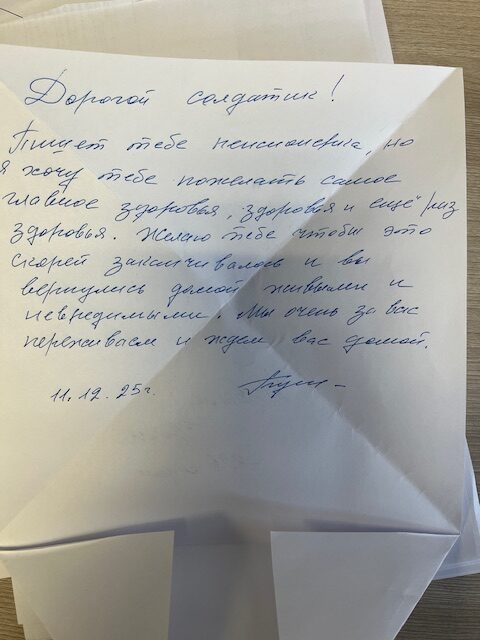 Дорогой солдатик!
Пишет тебе пенсионерка, но
я хочу тебе пожелать самое
главное здоровья, здоровья и ещё раз
здоровья. Желаю тебе чтобы это
скорей заканчивалось и вы
вернулись домой живыми и
невредимыми. Мы очень за вас
переживаем и ждем вас домой.
11.12.25г.